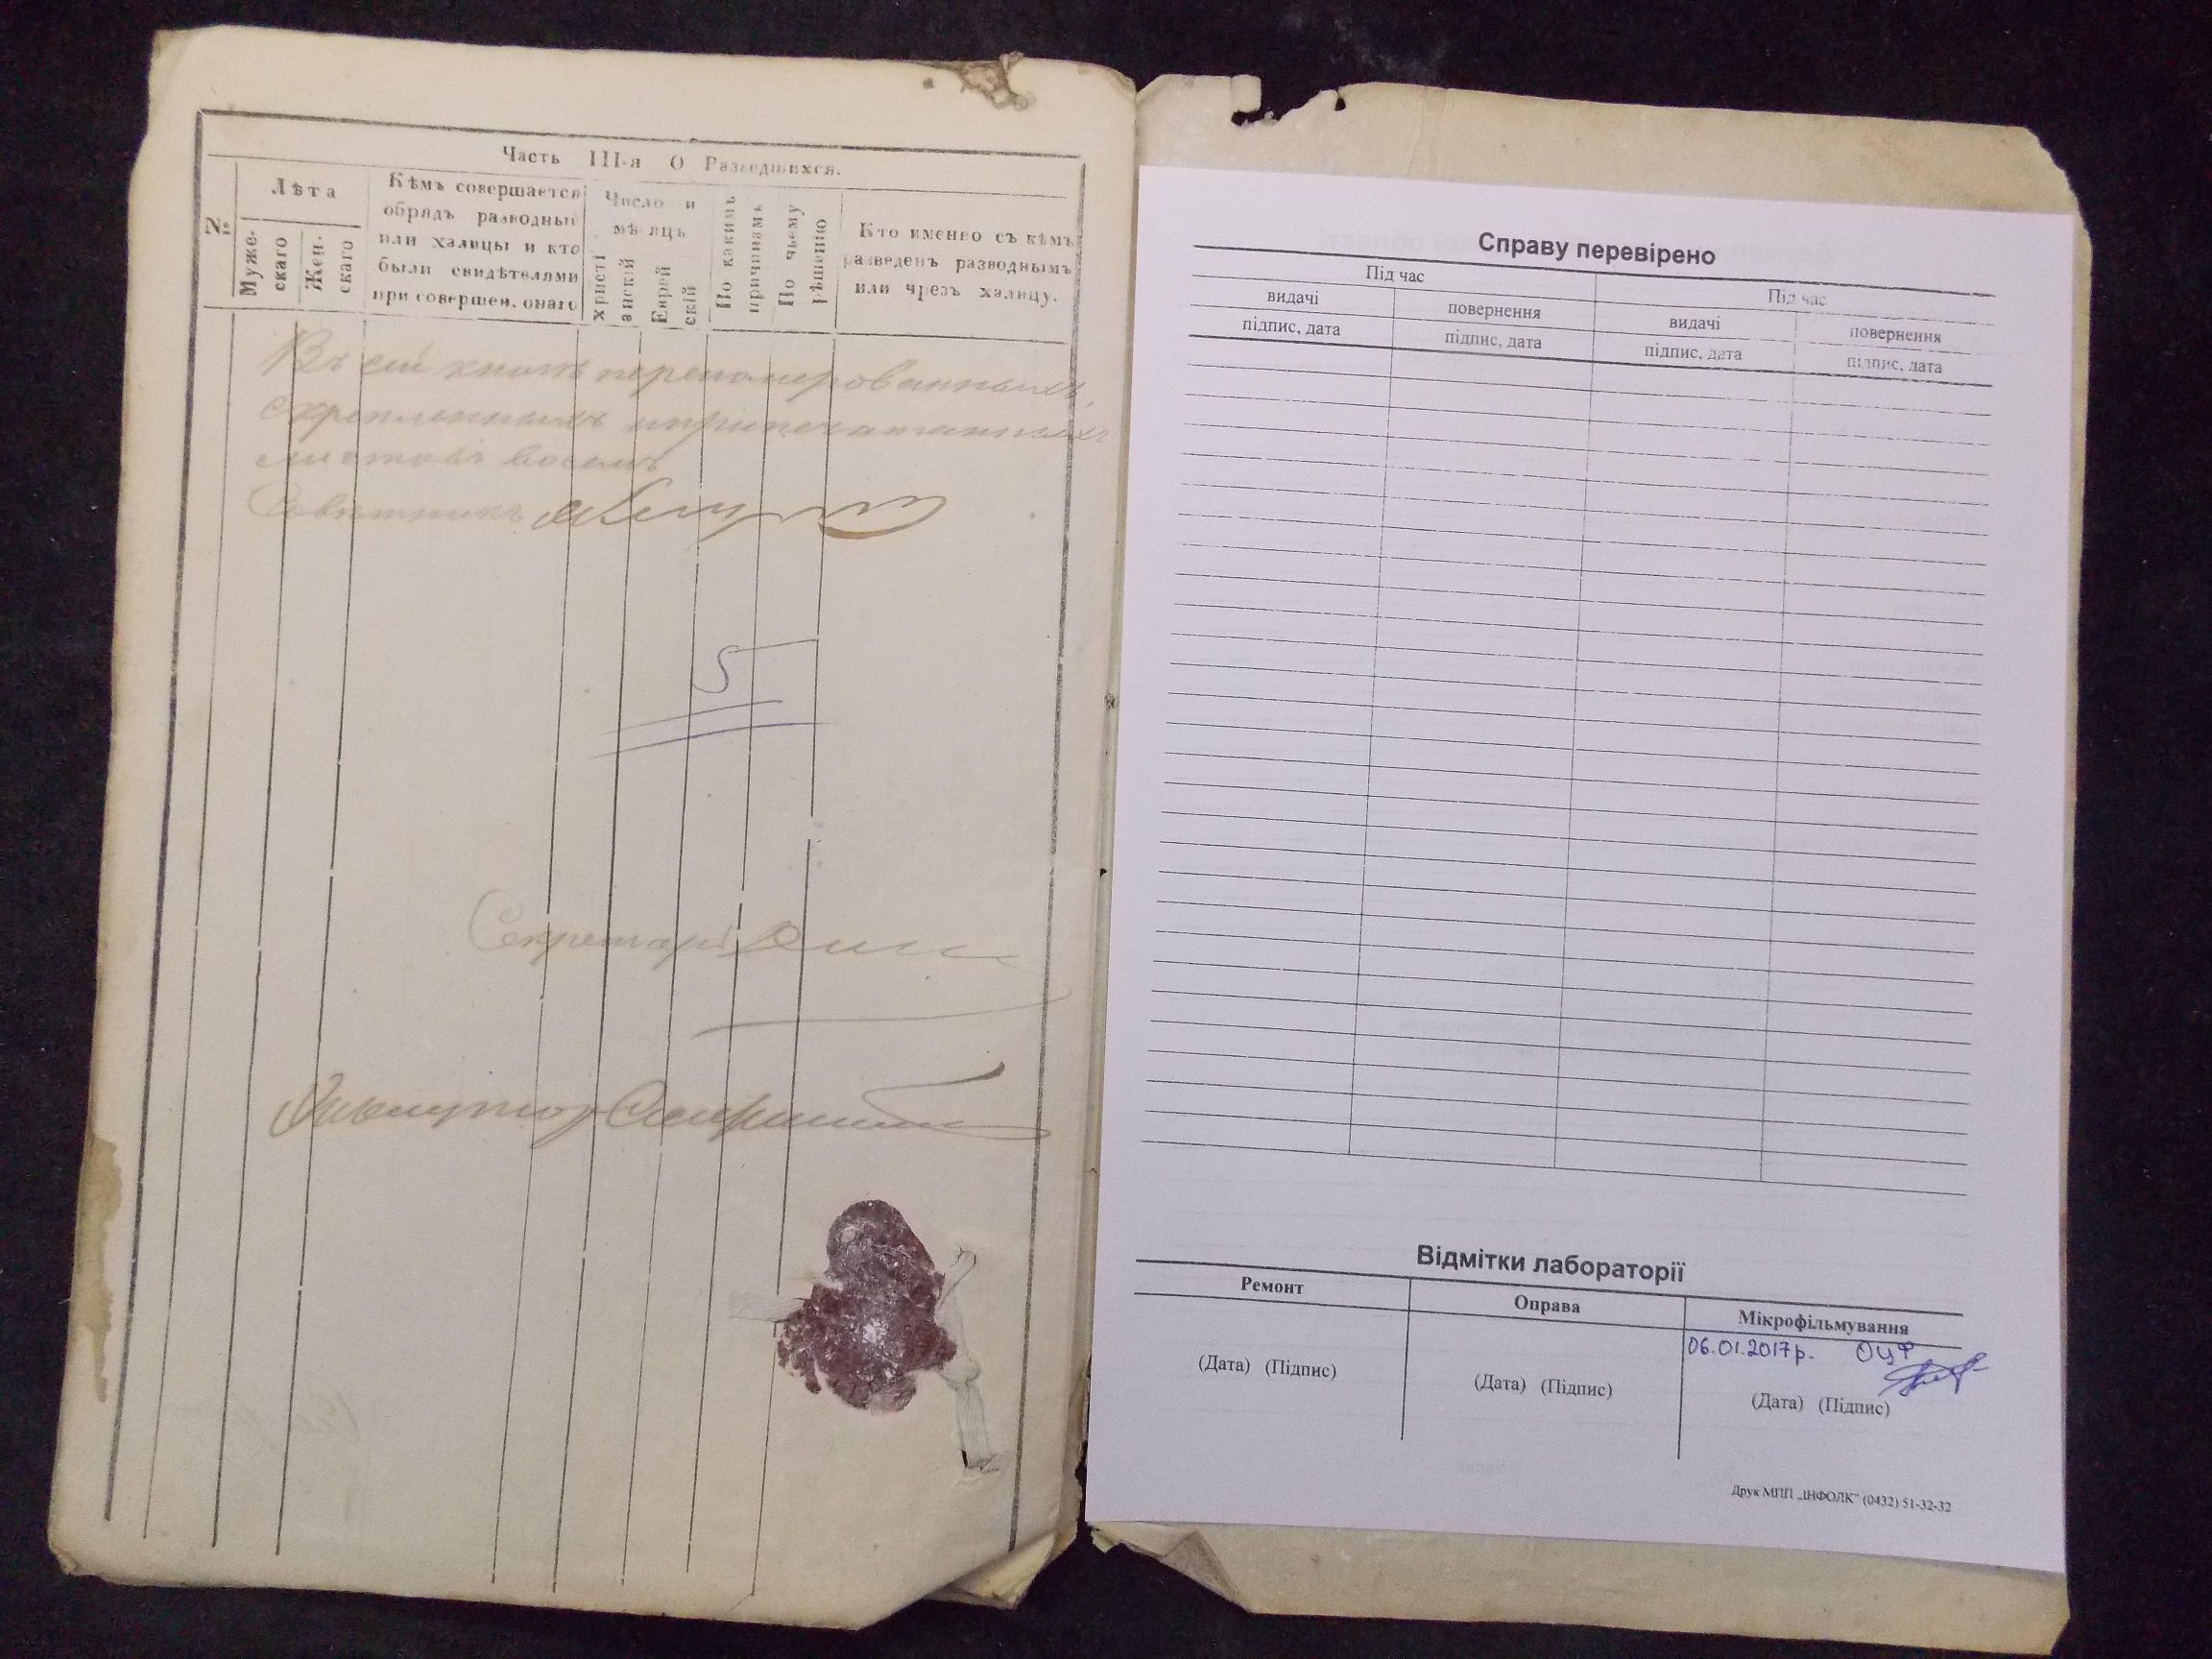 Часть III-я О Разведшихся.
№
Лѣта
Муже-
скаго
Жен-
скаго
Кѣмъ совершается
обрядъ разводный
или халицы и кто
были свидѣтелями
при совершен. онаго
Число и
мѣсяцъ
христі
анскій
Еврей
скій
По какимъ
причинамъ
По чьему
рѣшенію
Кто именно съ кѣмъ
разведенъ разводнымъ
или чрезъ халицу.
Въ сей книгѣ перенумерованныхъ,
скрепленныхъ и припечатанныхъ
листовъ восемь
Совѣтникъ
5
Секретарь
Справу перевірено
Під час
Під час
видачі
повернення
видачі
повернення
підпис, дата
підпис, дата
підпис, дата
підпис, дата
Відмітки лабораторії
Ремонт
Оправа
Мікрофільмування
06.01.2017р. ОЦФ
(Дата) (Підпис)
(Дата) (Підпис)
(Дата) (Підпис)
Друк МПП „ІНФОЛК" (0432) 51-32-32